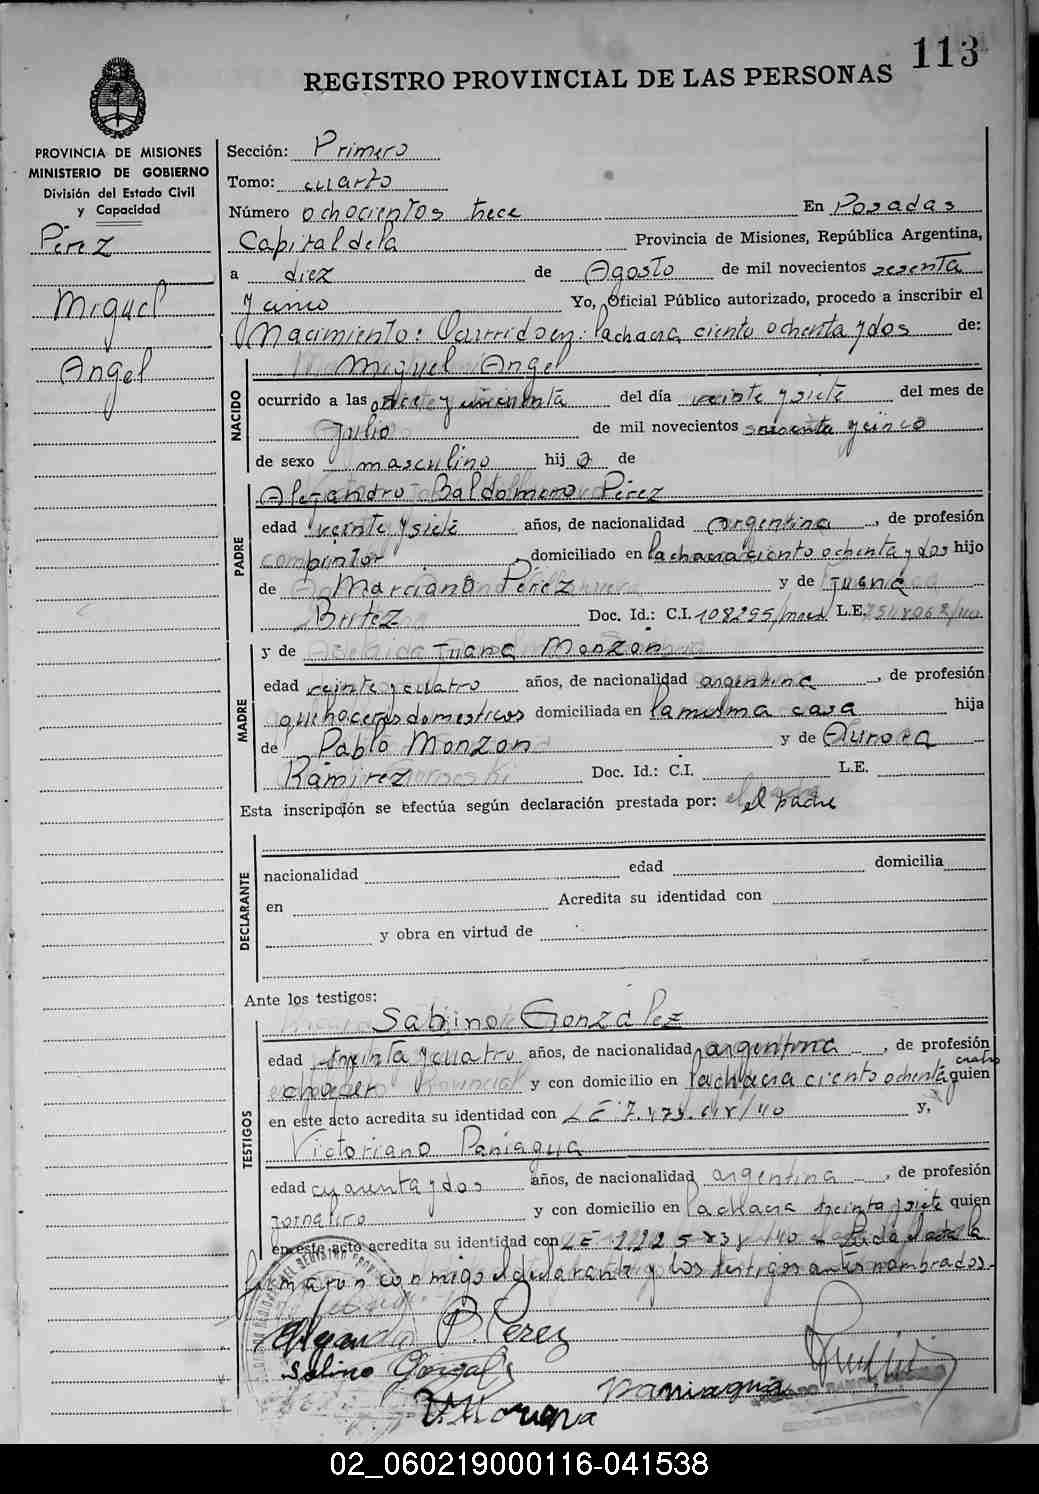 113
REGISTRO PROVINCIAL DE LAS PERSONAS
PROVINCIA DE MISIONES
MINISTERIO DE GOBIERNO
División del Estado Civil
y Capacidad
Pérez
Miguel
Angel
Sección: Primero
Tomo: cuarto
Número ochocientos trece En Posadas
Capital de la Provincia de Misiones, República Argentina,
a diez de Agosto de mil novecientos sesenta
y cinco Yo, Oficial Público autorizado, procedo a inscribir el
Nacimiento: Ocurrido en: la chacra ciento ochenta y dos de:
NACIDO
Miguel Angel
ocurrido a las y cincuenta del día veinte y siete del mes de
Julio de mil novecientos sesenta y cinco
de sexo masculino hij o de
PADRE
Alejandro Baldomero Pérez
edad veinte y siete años, de nacionalidad argentina, de profesión
pintor, domiciliado en la chacra ciento ochenta y dos hijo
de Marciano Pérez y de Juana
Doc. Id.: C.I. 108295/mnes L.E.
MADRE
y de Juana Monzón
edad veinte y cuatro años, de nacionalidad argentina, de profesión
quehaceres domesticos domiciliada en la misma casa hija
de Pablo Monzon y de Aurora
Ramirez Doc. Id.: C.I. L.E.
Esta inscripción se efectúa según declaración prestada por: el padre
DECLARANTE
nacionalidad edad domicilia
en Acredita su identidad con
y obra en virtud de
Ante los testigos:
TESTIGOS
Sabino González
edad treinta y cuatro años, de nacionalidad argentina, de profesión
chofer y con domicilio en la chacra ciento ochenta y cuatro quien
en este acto acredita su identidad con L E 7. y,
Victoriano Paniagua
edad cuarenta y dos años, de nacionalidad argentina, de profesión
jornalero y con domicilio en la chacra treinta y siete quien
en este acto acredita su identidad con L E Leida el acta la
firmaron conmigo el declarante y los testigos antes nombrados.
Pérez
Sabino
Paniagua
02_060219000116-041538